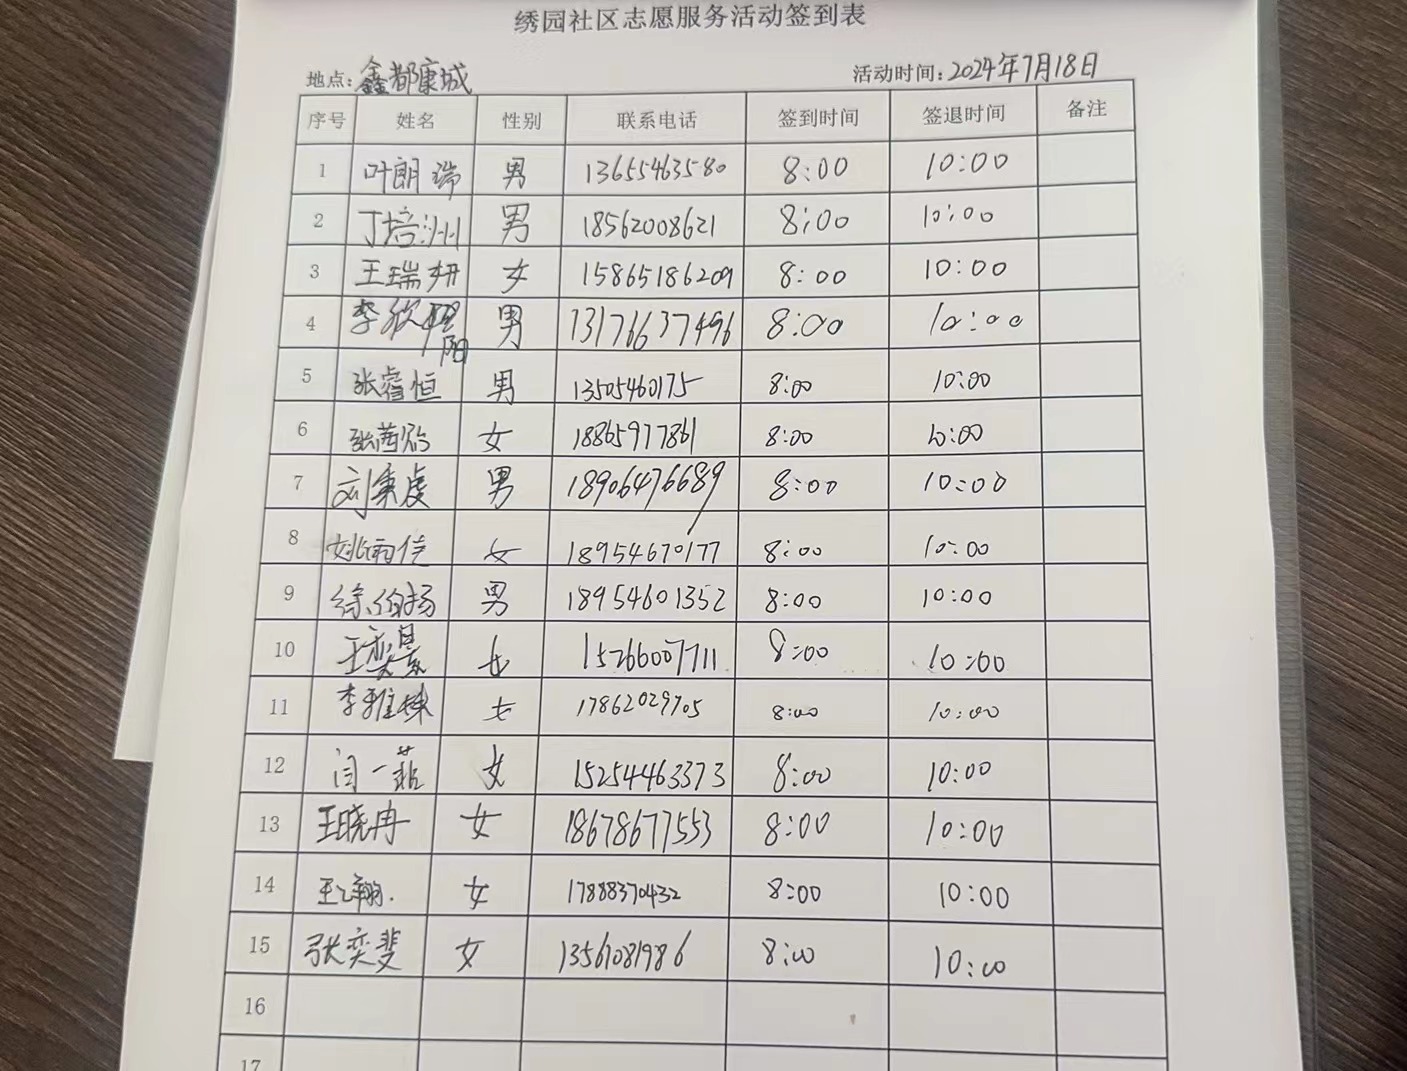 绣园社区志愿服务活动签到表
地点：鑫都康城 活动时间：2024年7月18日
序号 姓名 性别 联系电话 签到时间 签退时间 备注
1 叶朗瑞 男 13655463580 8:00 10:00
2 丁培洲 男 18562008621 8:00 10:00
3 王瑞妍 女 15865186209 8:00 10:00
4 李欣阳 男 13176637496 8:00 10:00
5 张睿恒 男 13505460175 8:00 10:00
6 张茜 女 18865977861 8:00 10:00
7 刘秉虔 男 18906476689 8:00 10:00
8 姚雨佳 女 18954670177 8:00 10:00
9 徐伯扬 男 18954601352 8:00 10:00
10 王奕景 女 15266007711 8:00 10:00
11 李雅栋 女 17862029705 8:00 10:00
12 闫一菲 女 15254463373 8:00 10:00
13 王晓冉 女 18678677553 8:00 10:00
14 王翱 女 17888370432 8:00 10:00
15 张奕斐 女 13561081986 8:00 10:00
16
17